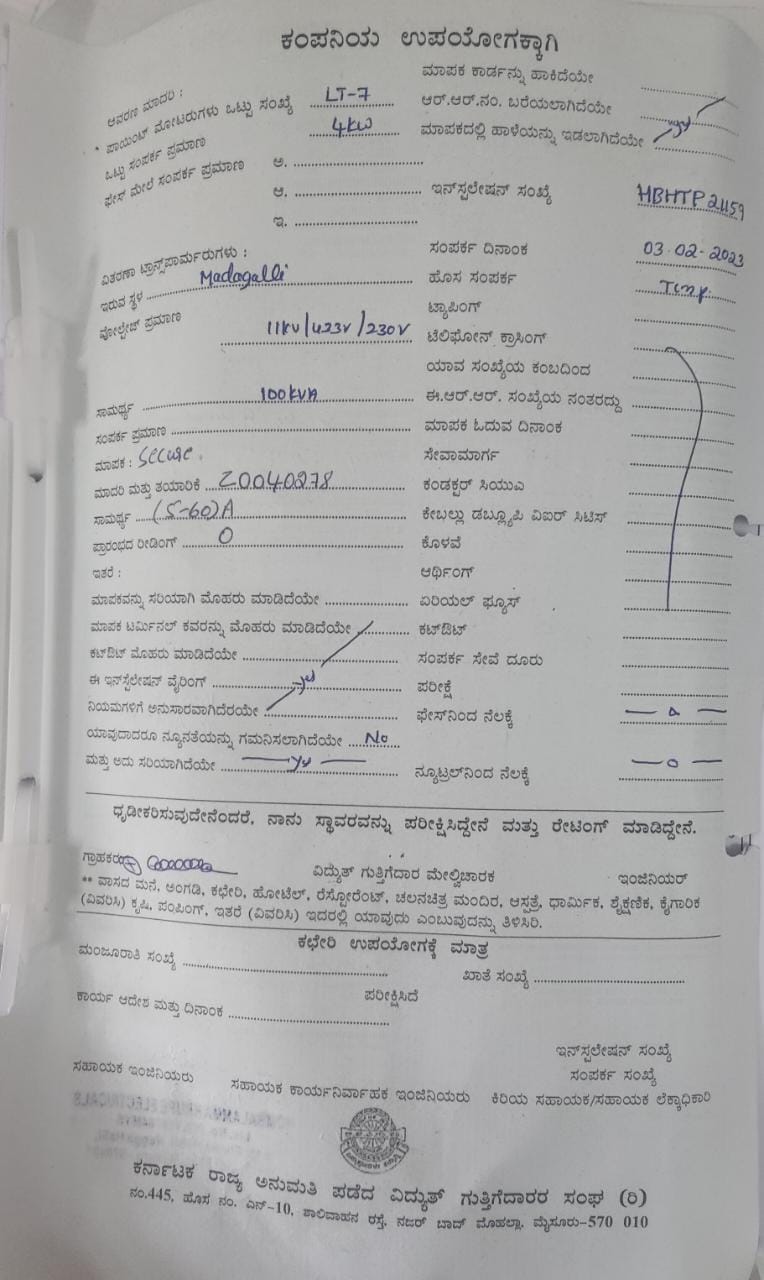 ಕಂಪನಿಯ ಉಪಯೋಗಕ್ಕಾಗಿ
ಆವರಣ ಮಾದರಿ :
* ಪಾಯಿಂಟ್ ಮೋಟರುಗಳು ಒಟ್ಟು ಸಂಖ್ಯೆ LT-7
ಒಟ್ಟು ಸಂಪರ್ಕ ಪ್ರಮಾಣ 4KW
ಫೇಸ್ ಮೇಲೆ ಸಂಪರ್ಕ ಪ್ರಮಾಣ ಅ.
ಆ.
ಇ.
ಮಾಪಕ ಕಾರ್ಡನ್ನು ಹಾಕಿದೆಯೇ
ಆರ್.ಆರ್.ನಂ. ಬರೆಯಲಾಗಿದೆಯೇ
ಮಾಪಕದಲ್ಲಿ ಹಾಳೆಯನ್ನು ಇಡಲಾಗಿದೆಯೇ yes
ಇನ್‌ಸ್ಟಲೇಷನ್ ಸಂಖ್ಯೆ HBHTP21159
ವಿತರಣಾ ಟ್ರಾನ್ಸ್‌ಪಾರ್ಮರುಗಳು :
ಇರುವ ಸ್ಥಳ Madagalli
ವೋಲ್ಟೇಜ್ ಪ್ರಮಾಣ 11KV/423V/230V
ಸಾಮರ್ಥ್ಯ 100KVA
ಸಂಪರ್ಕ ಪ್ರಮಾಣ
ಮಾಪಕ : Secure
ಮಾದರಿ ಮತ್ತು ತಯಾರಿಕೆ Z0040278
ಸಾಮರ್ಥ್ಯ (5-60)A
ಪ್ರಾರಂಭದ ರೀಡಿಂಗ್ 0
ಇತರೆ :
ಮಾಪಕವನ್ನು ಸರಿಯಾಗಿ ಮೊಹರು ಮಾಡಿದೆಯೇ
ಮಾಪಕ ಟರ್ಮಿನಲ್ ಕವರನ್ನು ಮೊಹರು ಮಾಡಿದೆಯೇ
ಕಟ್‌ಔಟ್ ಮೊಹರು ಮಾಡಿದೆಯೇ
ಈ ಇನ್‌ಸ್ಟಲೇಷನ್ ವೈರಿಂಗ್ yes
ನಿಯಮಗಳಿಗೆ ಅನುಸಾರವಾಗಿದೆರಯೇ
ಯಾವುದಾದರೂ ನ್ಯೂನತೆಯನ್ನು ಗಮನಿಸಲಾಗಿದೆಯೇ No
ಮತ್ತು ಅದು ಸರಿಯಾಗಿದೆಯೇ yes
ಸಂಪರ್ಕ ದಿನಾಂಕ 03-02-2023
ಹೊಸ ಸಂಪರ್ಕ Temp.
ಟ್ಯಾಪಿಂಗ್
ಟೆಲಿಫೋನ್ ಕ್ರಾಸಿಂಗ್
ಯಾವ ಸಂಖ್ಯೆಯ ಕಂಬದಿಂದ
ಈ.ಆರ್.ಆರ್. ಸಂಖ್ಯೆಯ ನಂತರದ್ದು
ಮಾಪಕ ಓದುವ ದಿನಾಂಕ
ಸೇವಾಮಾರ್ಗ
ಕಂಡಕ್ಟರ್ ಸಿಯುಎ
ಕೇಬಲ್ಲು ಡಬ್ಲ್ಯೂಪಿ ವಿಐರ್ ಸಿಟಿಸ್
ಕೊಳವೆ
ಆರ್ಥಿಂಗ್
ಏರಿಯಲ್ ಫ್ಯೂಸ್
ಕಟ್‌ಔಟ್
ಸಂಪರ್ಕ ಸೇವೆ ದೂರು
ಪರೀಕ್ಷೆ
ಫೇಸ್‌ನಿಂದ ನೆಲಕ್ಕೆ — 0 —
ನ್ಯೂಟ್ರಲ್‌ನಿಂದ ನೆಲಕ್ಕೆ — 0 —
ಧೃಡೀಕರಿಸುವುದೇನೆಂದರೆ, ನಾನು ಸ್ಥಾವರವನ್ನು ಪರೀಕ್ಷಿಸಿದ್ದೇನೆ ಮತ್ತು ರೇಟಿಂಗ್ ಮಾಡಿದ್ದೇನೆ.
ಗ್ರಾಹಕರು ವಿದ್ಯುತ್ ಗುತ್ತಿಗೆದಾರ ಮೇಲ್ವಿಚಾರಕ ಇಂಜಿನಿಯರ್
** ವಾಸದ ಮನೆ, ಅಂಗಡಿ, ಕಛೇರಿ, ಹೋಟೆಲ್, ರೆಸ್ಟೋರೆಂಟ್, ಚಲನಚಿತ್ರ ಮಂದಿರ, ಆಸ್ಪತ್ರೆ, ಧಾರ್ಮಿಕ, ಶೈಕ್ಷಣಿಕ, ಕೈಗಾರಿಕ
(ವಿವರಿಸಿ) ಕೃಷಿ, ಪಂಪಿಂಗ್, ಇತರೆ (ವಿವರಿಸಿ) ಇದರಲ್ಲಿ ಯಾವುದು ಎಂಬುವುದನ್ನು ತಿಳಿಸಿರಿ.
ಕಛೇರಿ ಉಪಯೋಗಕ್ಕೆ ಮಾತ್ರ
ಮಂಜೂರಾತಿ ಸಂಖ್ಯೆ ಖಾತೆ ಸಂಖ್ಯೆ
ಕಾರ್ಯ ಆದೇಶ ಮತ್ತು ದಿನಾಂಕ ಪರೀಕ್ಷಿಸಿದೆ
ಇನ್‌ಸ್ಟಲೇಷನ್ ಸಂಖ್ಯೆ
ಸಂಪರ್ಕ ಸಂಖ್ಯೆ
ಸಹಾಯಕ ಇಂಜಿನಿಯರು ಸಹಾಯಕ ಕಾರ್ಯನಿರ್ವಾಹಕ ಇಂಜಿನಿಯರು ಕಿರಿಯ ಸಹಾಯಕ/ಸಹಾಯಕ ಲೆಕ್ಕಾಧಿಕಾರಿ
ಕರ್ನಾಟಕ ರಾಜ್ಯ ಅನುಮತಿ ಪಡೆದ ವಿದ್ಯುತ್ ಗುತ್ತಿಗೆದಾರರ ಸಂಘ (ರಿ)
ನಂ.445, ಹೊಸ ನಂ. ಎನ್-10, ಶಾಲಿವಾಹನ ರಸ್ತೆ, ನಜರ್ ಬಾದ್ ಮೊಹಲ್ಲಾ, ಮೈಸೂರು-570 010